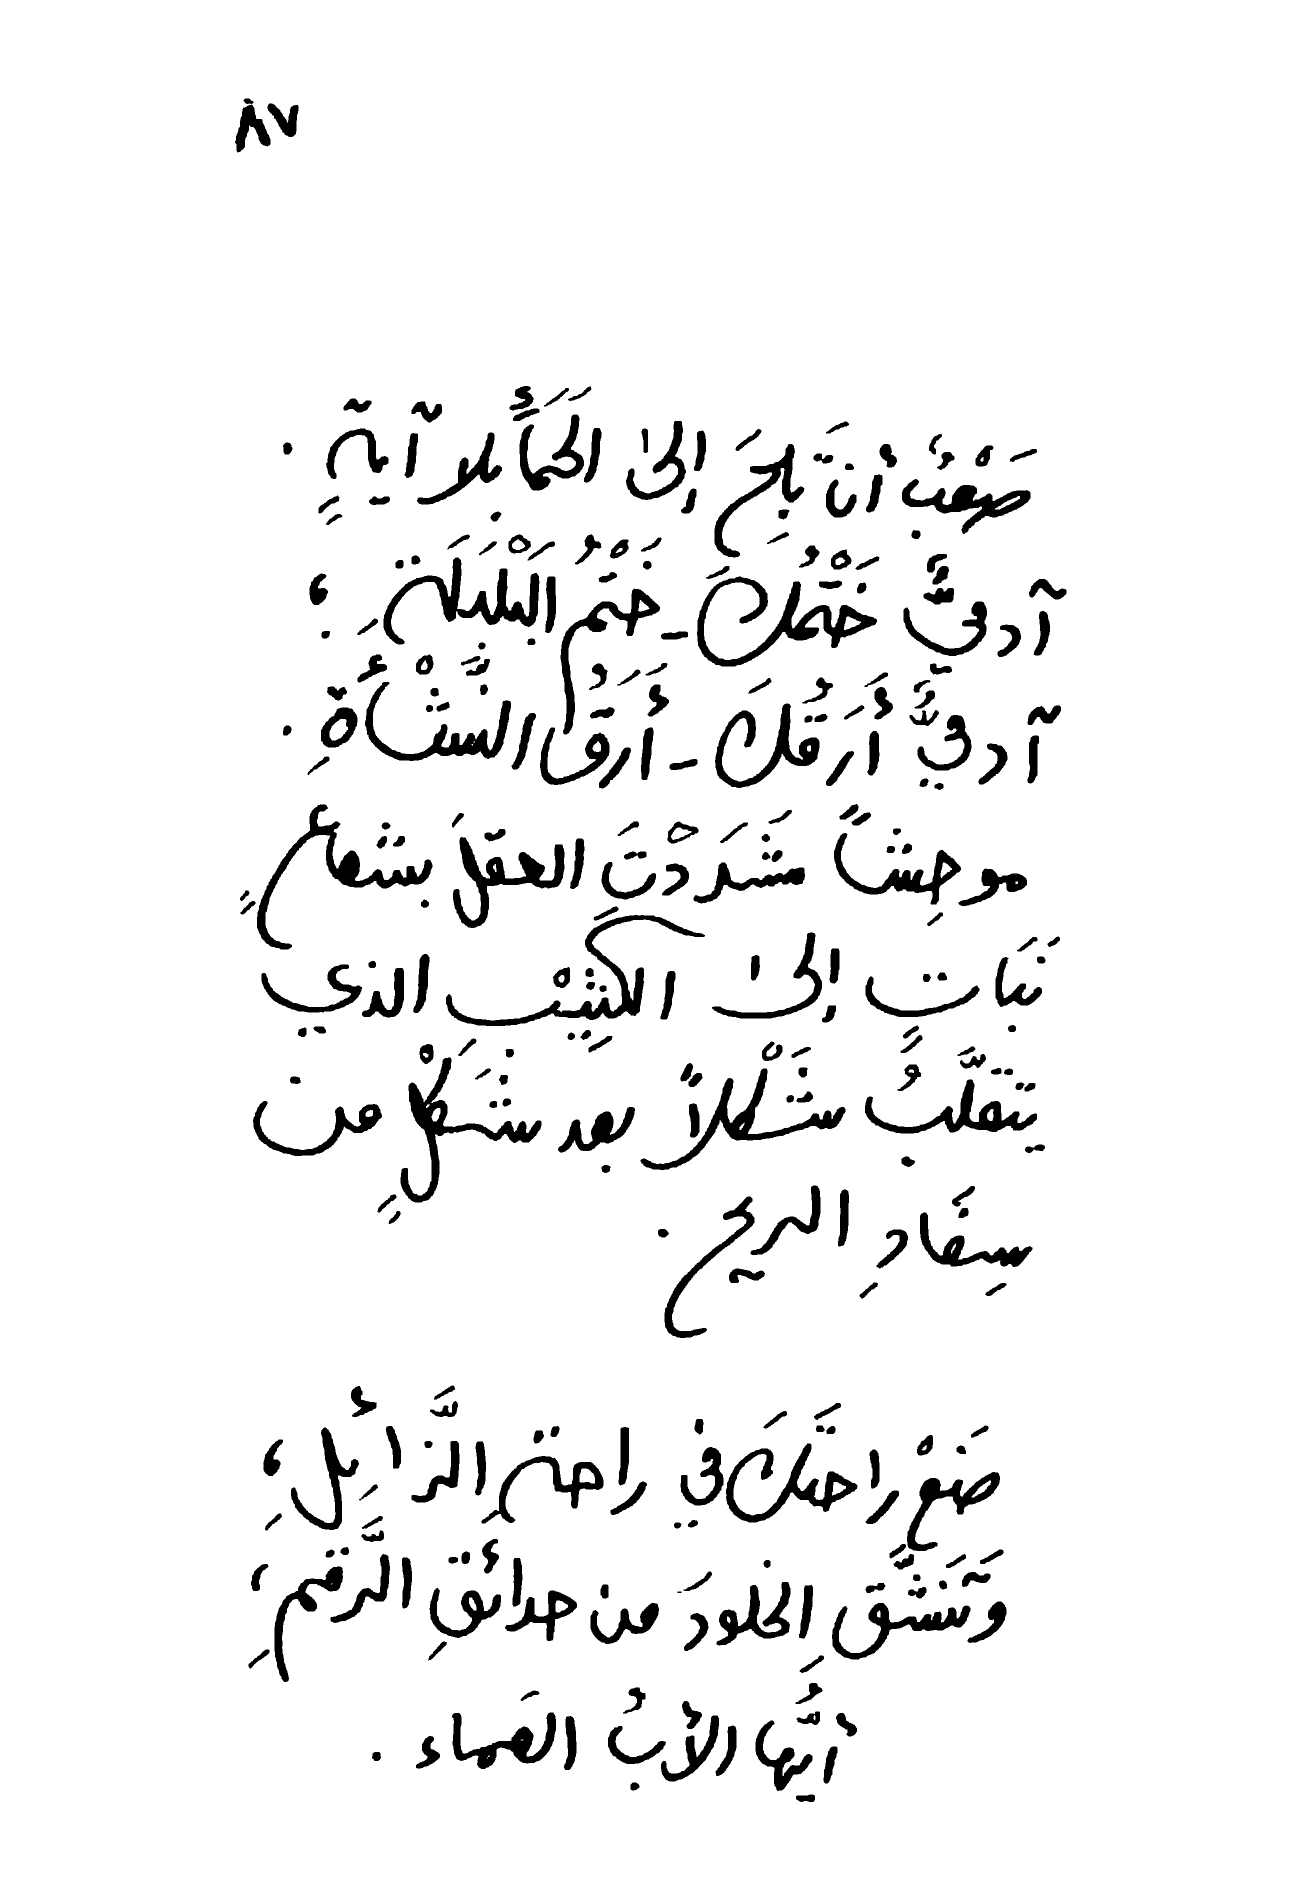 ٨٧
صَعْبٌ أن تَلِجَ إلىٰ الحَمَأِ بِلا آيةٍ .
آدميٌّ خَتْمُكَ - خَتْمُ البَلْبَلَةِ ؛
آدميٌّ أَرَقُكَ - أَرَقُ النَّشْأَةِ .
موحِشاً شَرَدْتَ العقلَ بشعاعٍ
نَبَاتٍ إلىٰ الكَثِيْبِ الذي
يتقلَّبُ شَكْلاً بعد شَكْلٍ من
سِفَادِ الريح .
ضَعْ راحتَكَ في راحةِ الزَّائِلِ ،
وتَنَشَّقِ الخلودَ من حدائقِ الرَّقيمِ ،
أيُّها الأبُ الصَماء .